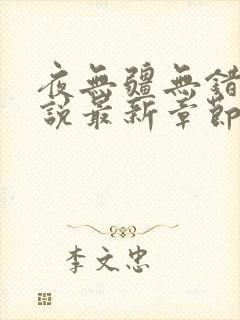 夜無疆無錯
說最新章節
李文忠